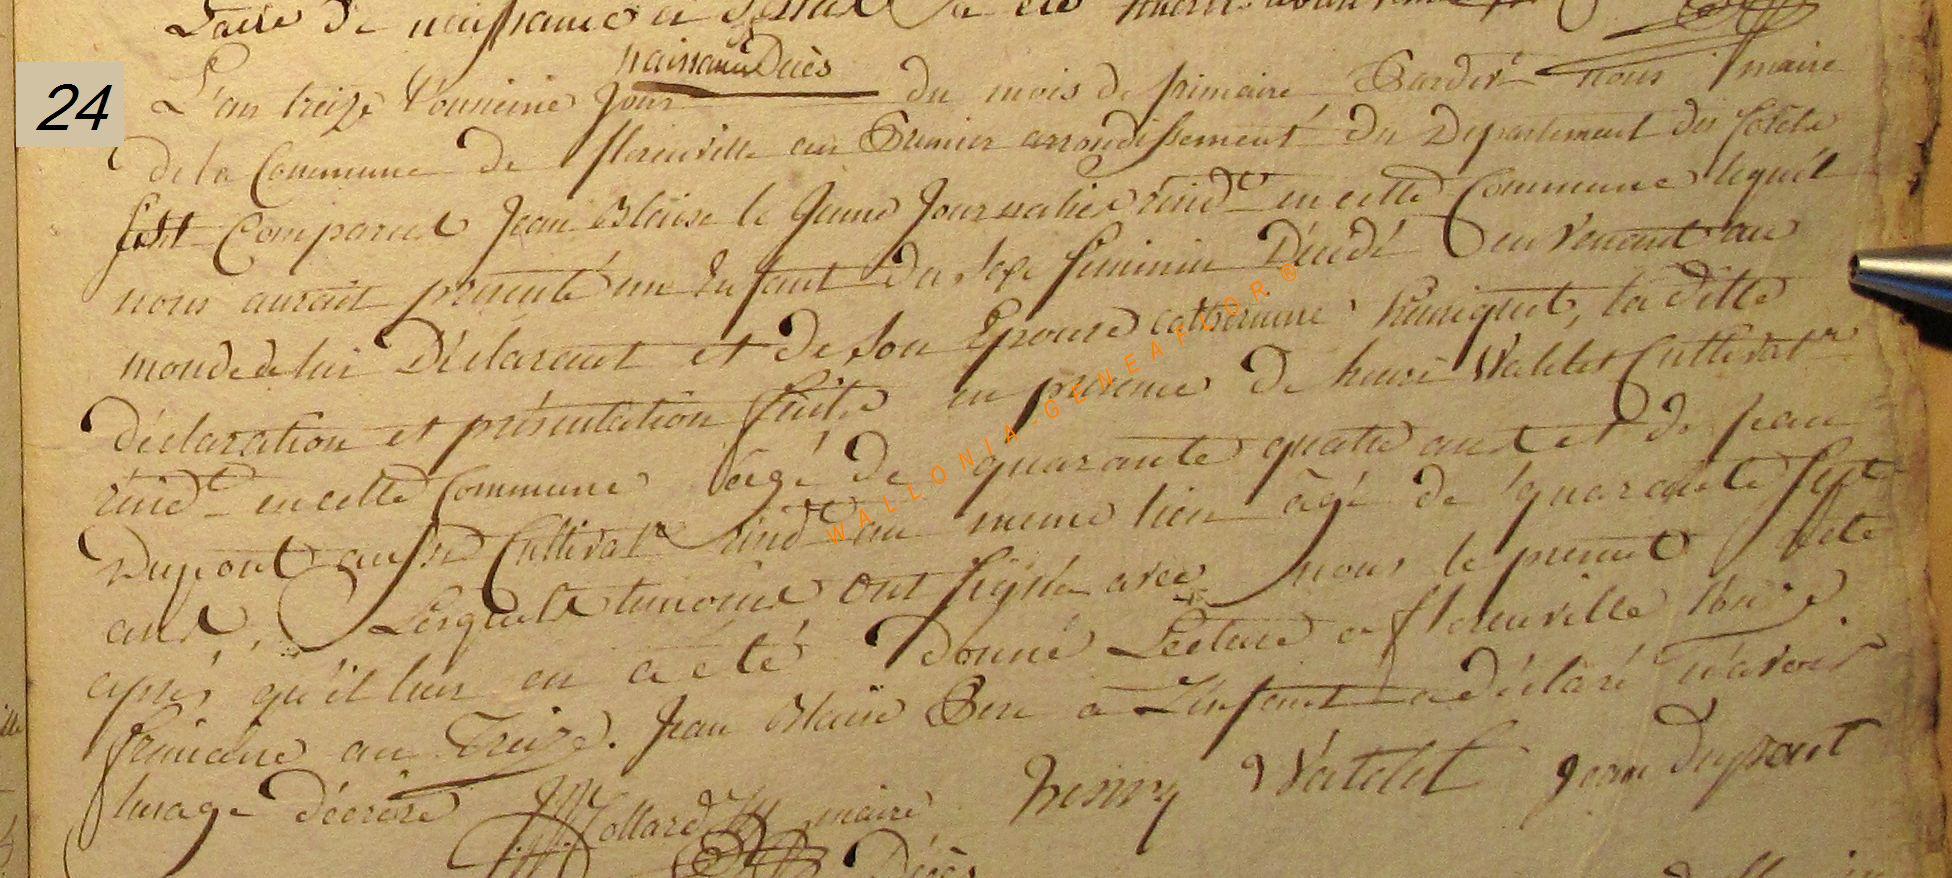 L'acte de naissance
naissance Décès
24
L'an treize l'onzieme Jour du mois de frimaire Pardev.t nous maire
de la Commune de florenville au Premier arrondissement du Departement des forets
fut Comparut Jean Blaise le Jeune Journalier resid.t en cette Commune lequel
nous aurait presenté un Enfant du sexe feminin Décédé en venant au
monde de lui Déclarant et de son Epouse catherinne henriquet, la ditte
déclaration et présentation faite en presence de henri Watelet Cultivat.r
resid.t en cette Commune âgé de quarante quatre ans et de jean
Dupont aussi Cultivat.r resid.t au meme lieu âgé de quarante sept
ans, Lesquels temoins ont signés avec nous le present acte
après qu'il leur en a été donné Lecture a florenville l'onze
frimaire an Treize. Jean Blaise Pere a L'enfant a déclaré n'avoir
lusage décrire Collard maire henry Watelet jean Dupont
Décès
WALLONIA-GENEAFLOR®